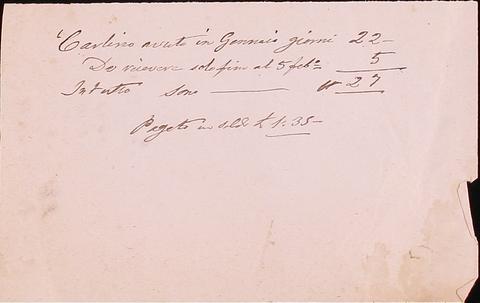 Carlino avuto in Gennaio giorni 22-
Da ricevere solo fino al 5 feb.º 5
In tutto sono —— nº 27
Pagato in soldi £ 1:35-